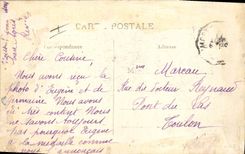 CARTE POSTALE
Correspondance
Adresse
Chère Cousine
Nous avons reçu la
photo d'Eugène et de
Germaine Nous avons
été très content Nous
ne savons toujours
pas pourquoi Eugène
a la médaille comme
nous annonçais
Mme Marcau
Rue du Docteur Reynaud
Pont du Las
Toulon